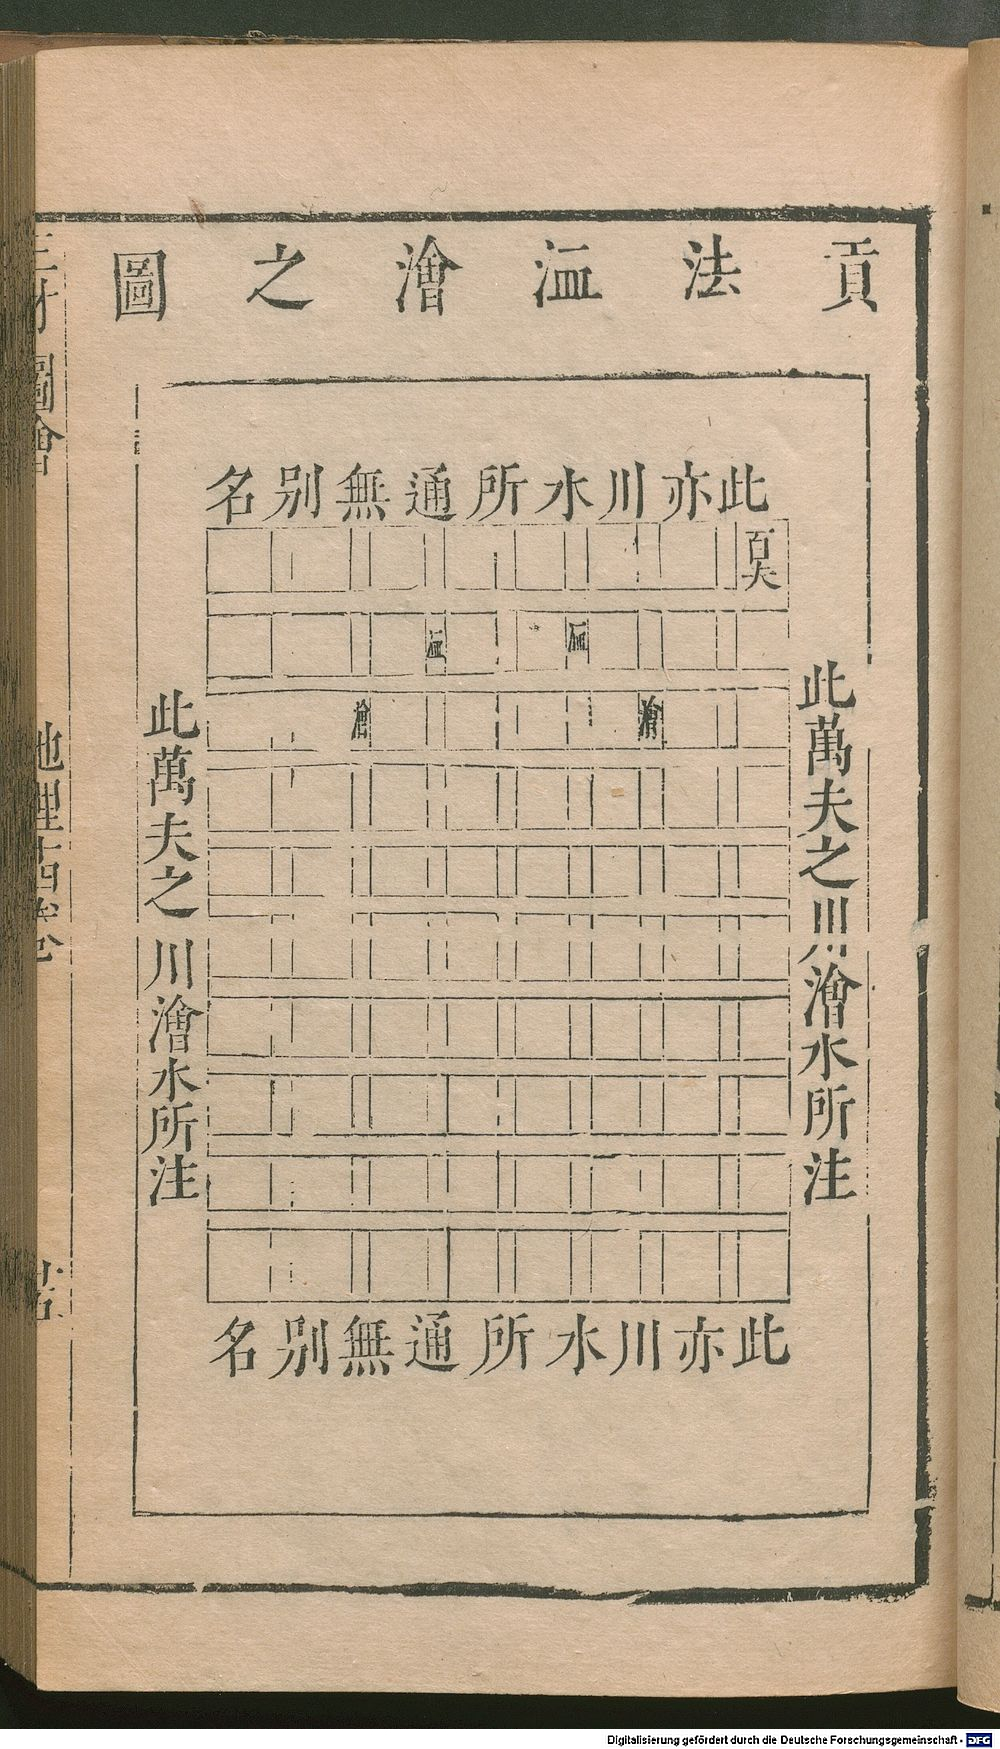 貢法洫澮之圖
此亦川水所通無別名
百夫
洫
洫
澮
澮
此萬夫之川澮水所注
此萬夫之川澮水所注
此亦川水所通無別名
三才圖會
地理十四卷
Digitalisierung gefördert durch die Deutsche Forschungsgemeinschaft - DFG